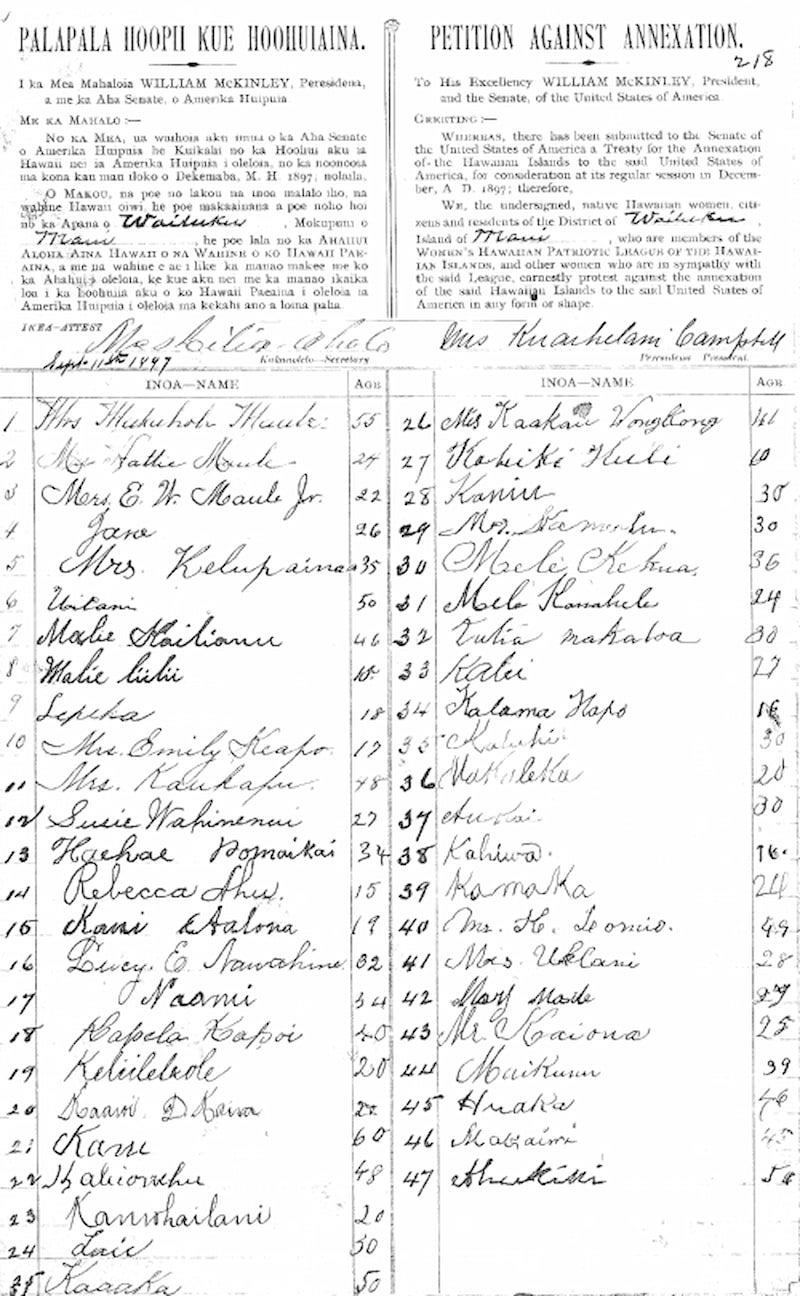 PALAPALA HOOPII KUE HOOHUIAINA.
I ka Mea Mahaloia WILLIAM McKINLEY, Peresidena,
a me ka Aha Senate, o Amerika Huipuia.
ME KA MAHALO :—
NO KA MEA, ua waihoia aku imua o ka Aha Senate
o Amerika Huipuia he Kuikahi no ka Hoohui aku ia
Hawaii nei ia Amerika Huipuia i oleloia, no ka noonooia
ma kona kau mau iloko o Dekemaba, M. H. 1897; nolaila,
O MAKOU, na poe no lakou na inoa malalo iho, na
wahine Hawaii oiwi, he poe makaainana a poe noho hoi
no ka Apana o Wailuku, Mokupuni o
Maui, he poe lala no ka AHAHUI
ALOHA AINA HAWAII O NA WAHINE O KO HAWAII PAE-
AINA, a me na wahine e ae i like ka manao makee me ko
ka Ahahui i oleloia, ke kue aku nei me ka manao ikaika
loa i ka hoohuiia aku o ko Hawaii Paeaina i oleloia ia
Amerika Huipuia i oleloia ma kekahi ano a loina paha.
IKEA—ATTEST
Sept. 11th 1897
Kakauolelo—Secretary
PETITION AGAINST ANNEXATION.
218
To His Excellency WILLIAM McKINLEY, President,
and the Senate, of the United States of America.
GREETING :—
WHEREAS, there has been submitted to the Senate of
the United States of America a Treaty for the Annexation
of the Hawaiian Islands to the said United States of
America, for consideration at its regular session in Decem-
ber, A. D. 1897; therefore,
WE, the undersigned, native Hawaiian women, citi-
zens and residents of the District of Wailuku,
Island of Maui, who are members of the
WOMEN'S HAWAIIAN PATRIOTIC LEAGUE OF THE HAWAI-
IAN ISLANDS, and other women who are in sympathy with
the said League, earnestly protest against the annexation
of the said Hawaiian Islands to the said United States of
America in any form or shape.
Mrs Kuaihelani Campbell
Peresidena President.
INOA—NAME AGE
1 Mrs Maule 55
2 Hattie Maule 24
3 Mrs. E. W. Maule Jr. 22
4 Jane 26
5 Mrs. Kelupaina 35
6 50
7 Malie Hailianu 46
8 Malie liilii
9 Lepeka 18
10 Mrs. Emily Keapo 17
11 Mrs. Kaukapu 48
12 Susie Wahinenui 27
13 Haehae Pomaikai 34
14 Rebecca Ahu. 15
15 Kani Aalona 19
16 Lucy E. Nawahine 32
17 Naomi 34
18 Kapela Kapoi 40
19 Keliilelole 20
20 D. Kaiva
21 Kani 60
22 48
23 Kanwhailani 20
24 Laie 50
25 Kaaaka 50
INOA—NAME AGE
26 Mrs Kaakau Wongkong
27 Kahiki Huli
28 Kaniu 30
29 Mrs. 30
30 Mele Kekua. 36
31 Mele Kanahele 24
32 Tutia makaloa 30
33 Kalei 27
34 Kalama Hapo 16
35 Kaluhi 30
36 Nakaleka 20
37 30
38 Kahiwa. 16.
39 Kamaka 24
40 Mrs. H. 49
41 Mrs. Uilani 28
42 Mary Maile 27
43 Kaiona 25
44 Maikuuu 39
45 Huaka 46
46 45
47 Ahukiki